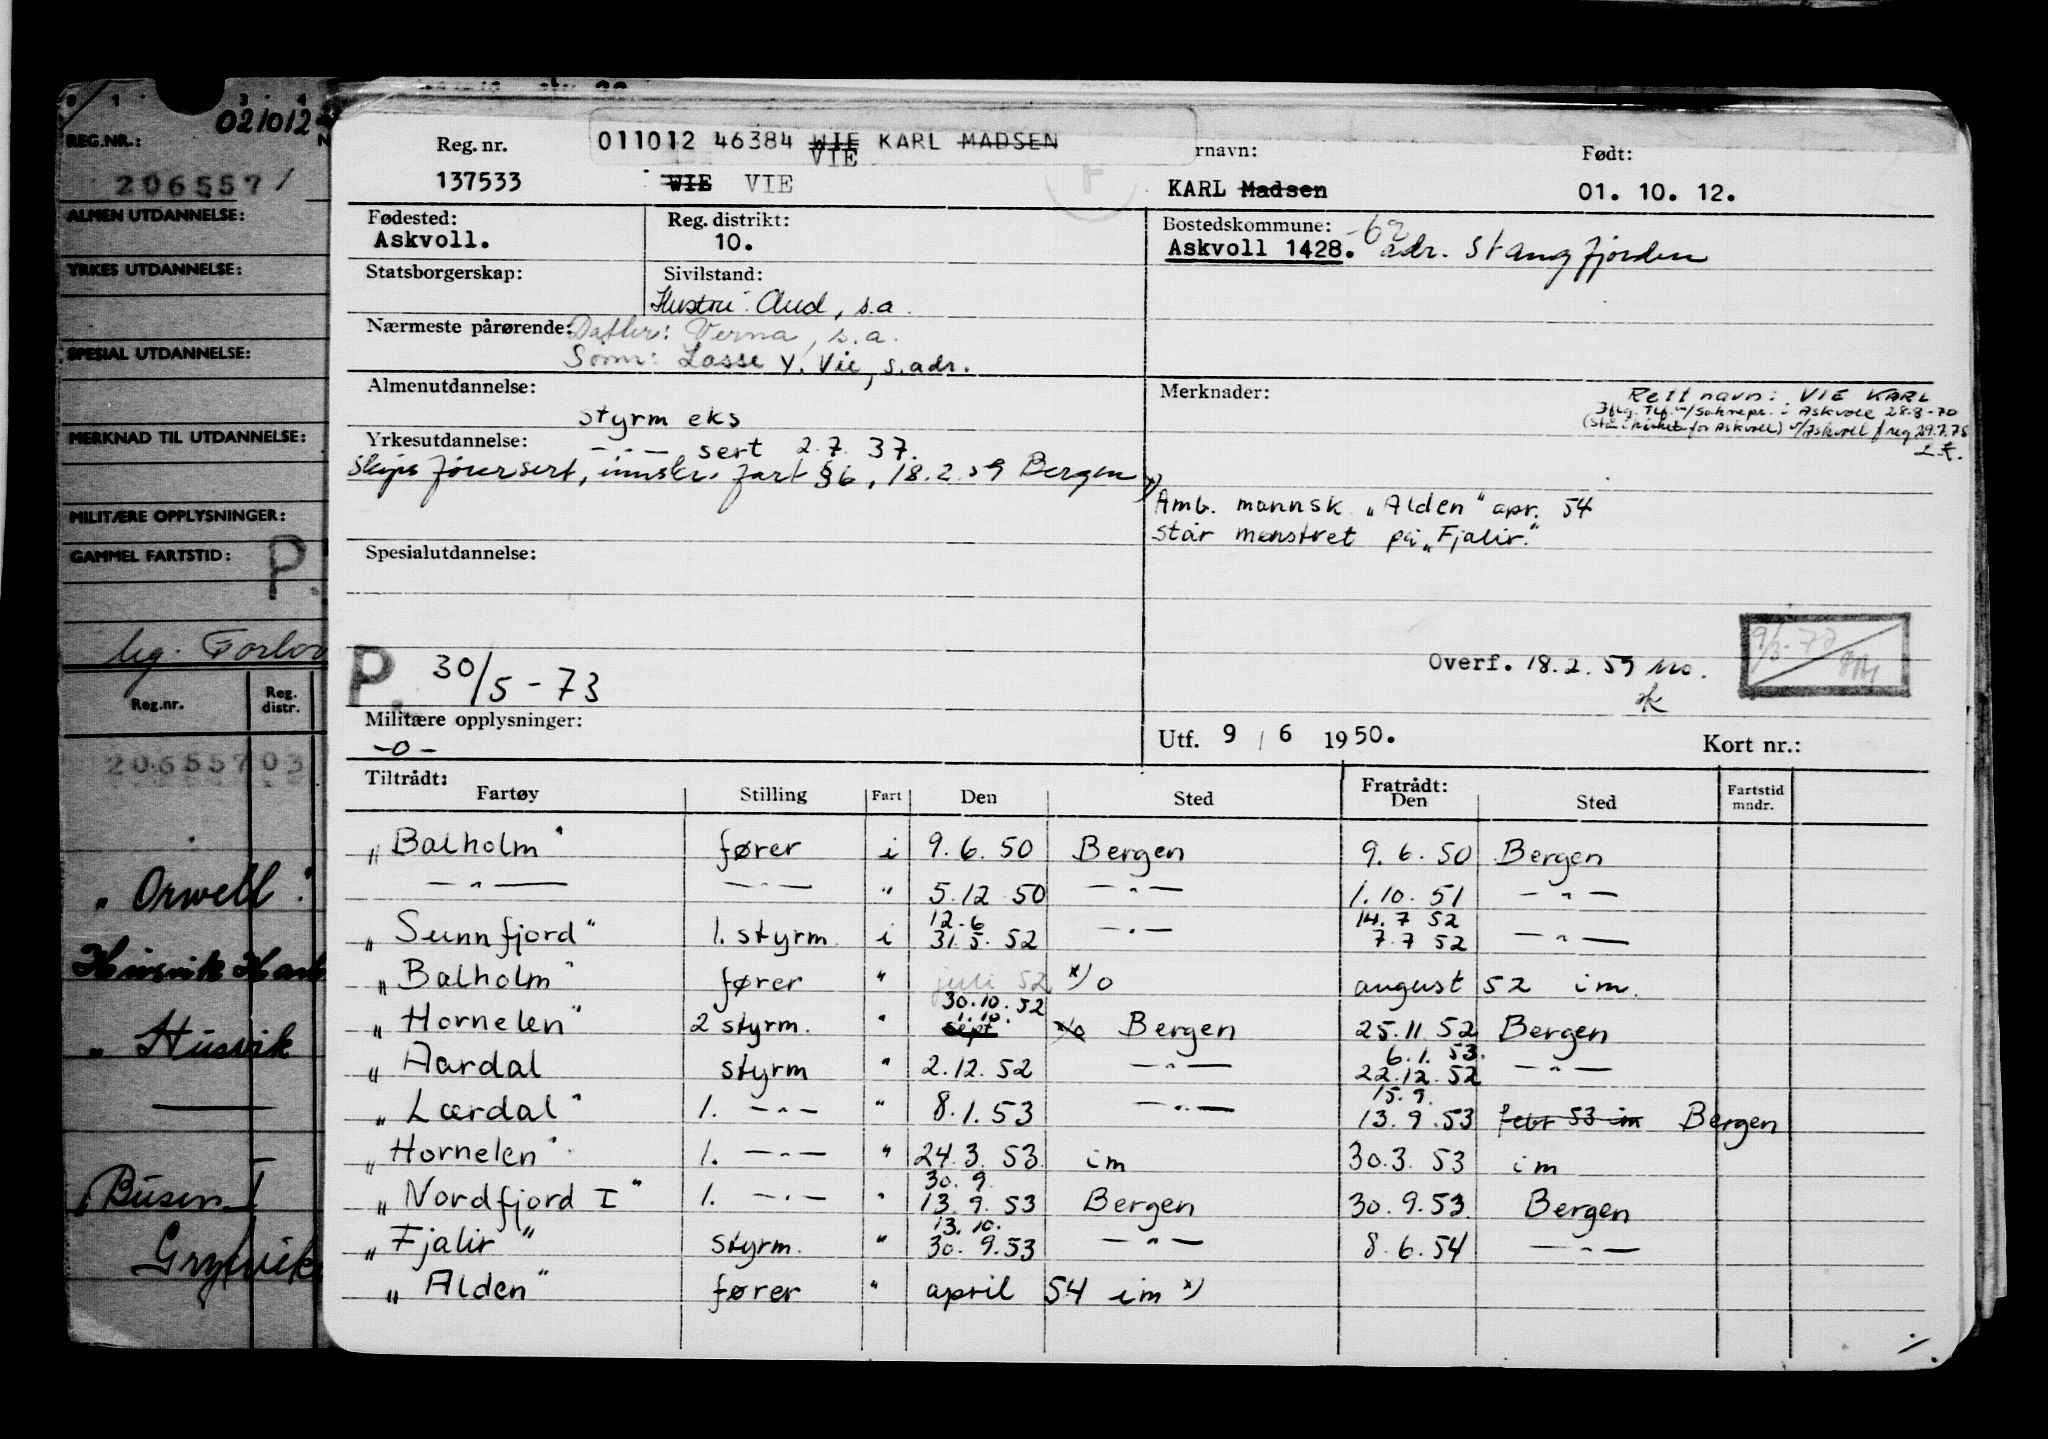 0 1 3 4
021012
REG.NR.:
N
206557
ALMEN UTDANNELSE:
YRKES UTDANNELSE:
SPESIAL UTDANNELSE:
MERKNAD TIL UTDANNELSE:
MILITÆRE OPPLYSNINGER:
GAMMEL FARTSTID:
P.
Reg.nr.
Reg. distr.
20655703
"Orwell"
"Husvik
Busen I
Reg. nr.
011012 46384 WIE KARL MADSEN
VIE
137533
WIE VIE
rnavn:
KARL Madsen
Født:
01. 10. 12.
Fødested:
Askvoll.
Reg. distrikt:
10.
Bostedskommune:
Askvoll 1428. -62 adr. Stangfjorden
Statsborgerskap:
Sivilstand:
Hustru: Aud, s.a.
Nærmeste pårørende: Datter: Verna, s.a.
Sønn: Lasse Y. Vie, s.adr.
Almenutdannelse:
styrm eks
Yrkesutdannelse:
—"— sert 2.7.37.
Skipsførersert, innskr. fart §6, 18.2.59 Bergen
Spesialutdannelse:
P. 30/5-73
Militære opplysninger:
-o-
Merknader:
Rett navn: VIE KARL
Askvoll 28.8-70
x) Amb. mannsk. "Alden" apr. 54
står mønstret på "Fjalir."
Overf. 18.2.59
Utf. 9 / 6 1950.
Kort nr.:
Tiltrådt:
Fratrådt:
Fartøy Stilling Fart Den Sted Den Sted Fartstid mndr.
"Balholm" fører i 9.6.50 Bergen 9.6.50 Bergen
—"— —"— " 5.12 50 —"— 1.10.51 —"—
12.6 14.7 52
"Sunnfjord" 1. styrm. i 31.5.52 —"— 7.7 52 —"—
"Balholm" fører " juli 52 x) o august 52 im.
30.10.52
1.10.
"Hornelen" 2 styrm. " sept x)o Bergen 25.11.52 Bergen
6.1.53.
"Aardal styrm " 2.12.52 —"— 22.12.52 —"—
15.9.
"Lærdal" 1. —"— " 8.1.53 —"— 13.9.53 febr 53 im Bergen
"Hornelen" 1. —"— " 24.3.53 im 30.3.53 im
30.9.
"Nordfjord I" 1. —"— " 13.9.53 Bergen 30.9.53 Bergen
13.10.
"Fjalir" styrm. " 30.9.53 —"— 8.6.54 —"—
"Alden" fører " april 54 im x)